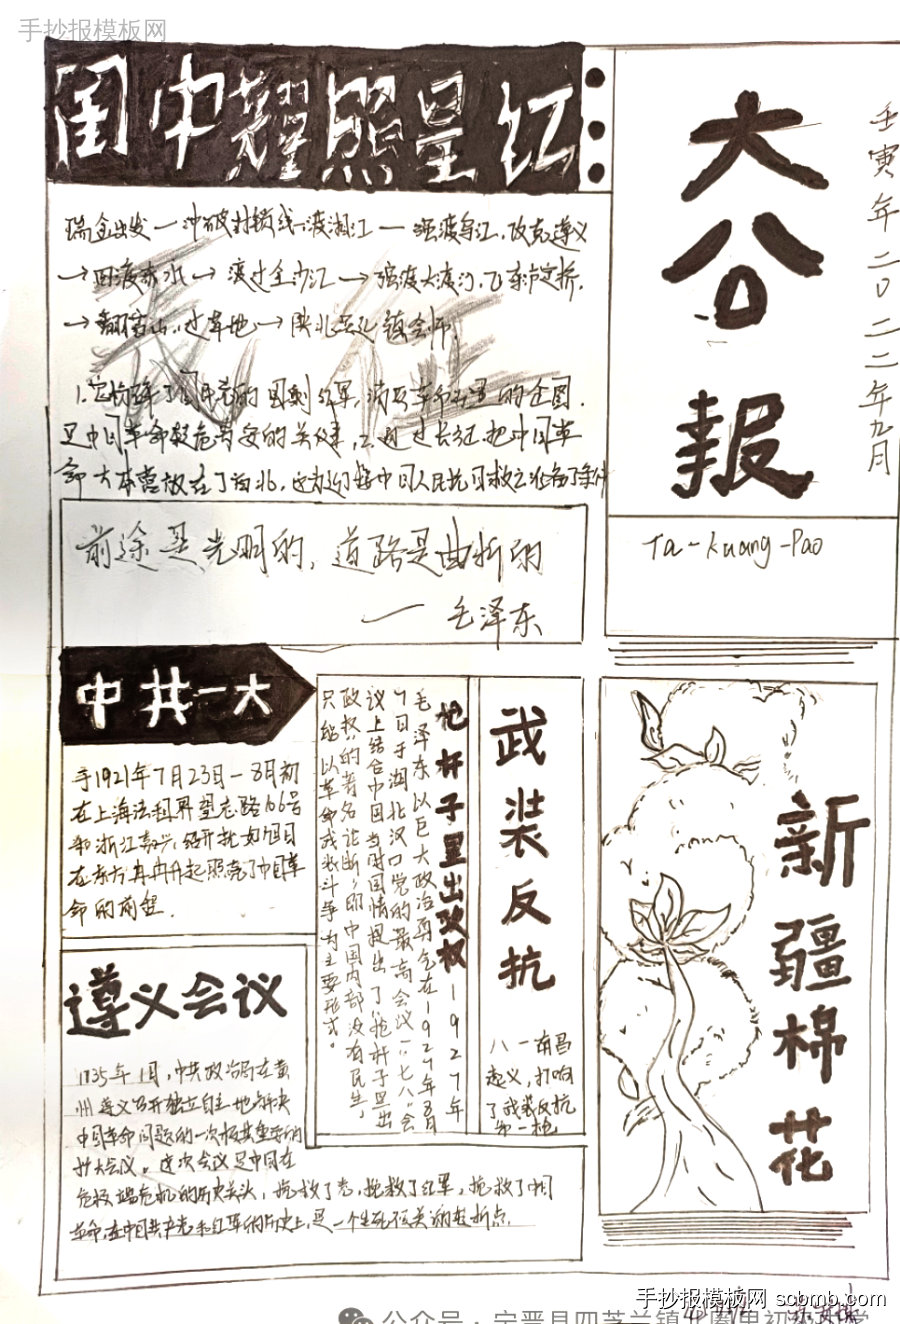 手抄报模板网
闺中耀照星红
大公报
壬寅年二〇二二年九月
Ta-Kuang-Pao
瑞金出发—冲破封锁线→渡湘江—强渡乌江,攻克遵义
→四渡赤水→渡过金沙江→强渡大渡河,飞夺泸定桥.
→翻雪山,过草地→陕北吴起镇会师.
1.它粉碎了国民党的围剿红军,消灭革命力量的企图.
是中国革命转危为安的关键,2.通过长征把中国革
命大本营放在了西北,这为迎接中国人民抗日救亡准备了条件
前途是光明的,道路是曲折的
—毛泽东
中共一大
于1921年7月23日-8月初
在上海法租界望志路106号
和浙江嘉兴召开犹如旭日
在东方冉冉升起照亮了中国革
命的前程.
枪杆子里出政权 1927年
毛泽东以巨大政治勇气在1927年8月
7日于湖北汉口党的最高会议"八七"会
议上结合中国当时国情提出了,枪杆子里出
政权的著名论断,即中国内部没有民主,
只能以革命武装斗争为主要形式。
武装反抗
八一南昌
起义,打响
了武装反抗
第一枪
新疆棉花
遵义会议
1935年1月,中共政治局在贵
州遵义召开独立自主地解决
中国革命问题的一次极其重要的
扩大会议。这次会议是中国在
危极端危机的历史关头,挽救了党,挽救了红军,挽救了中国
革命,在中国共产党和红军的历史上,是一个生死攸关的转折点.
手抄报模板网 scbmb.com
公众号·宁晋县四芝兰镇